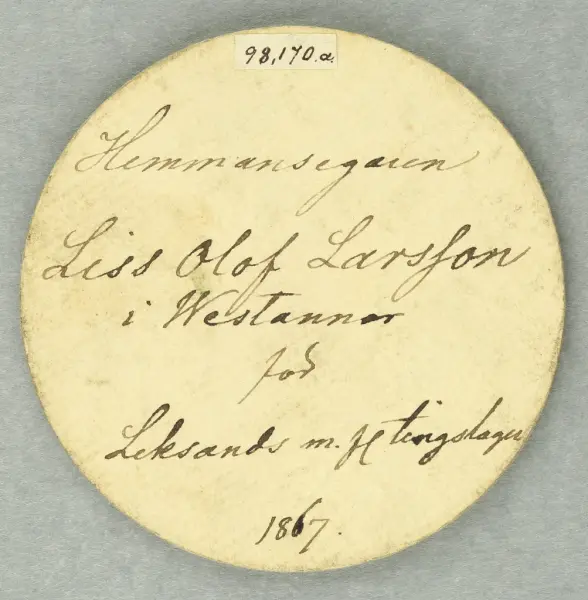 98,170.a.
Hemmansegaren
Liss Olof Larsson
i Westannor
för
Leksands m. fl tingslager
1867.